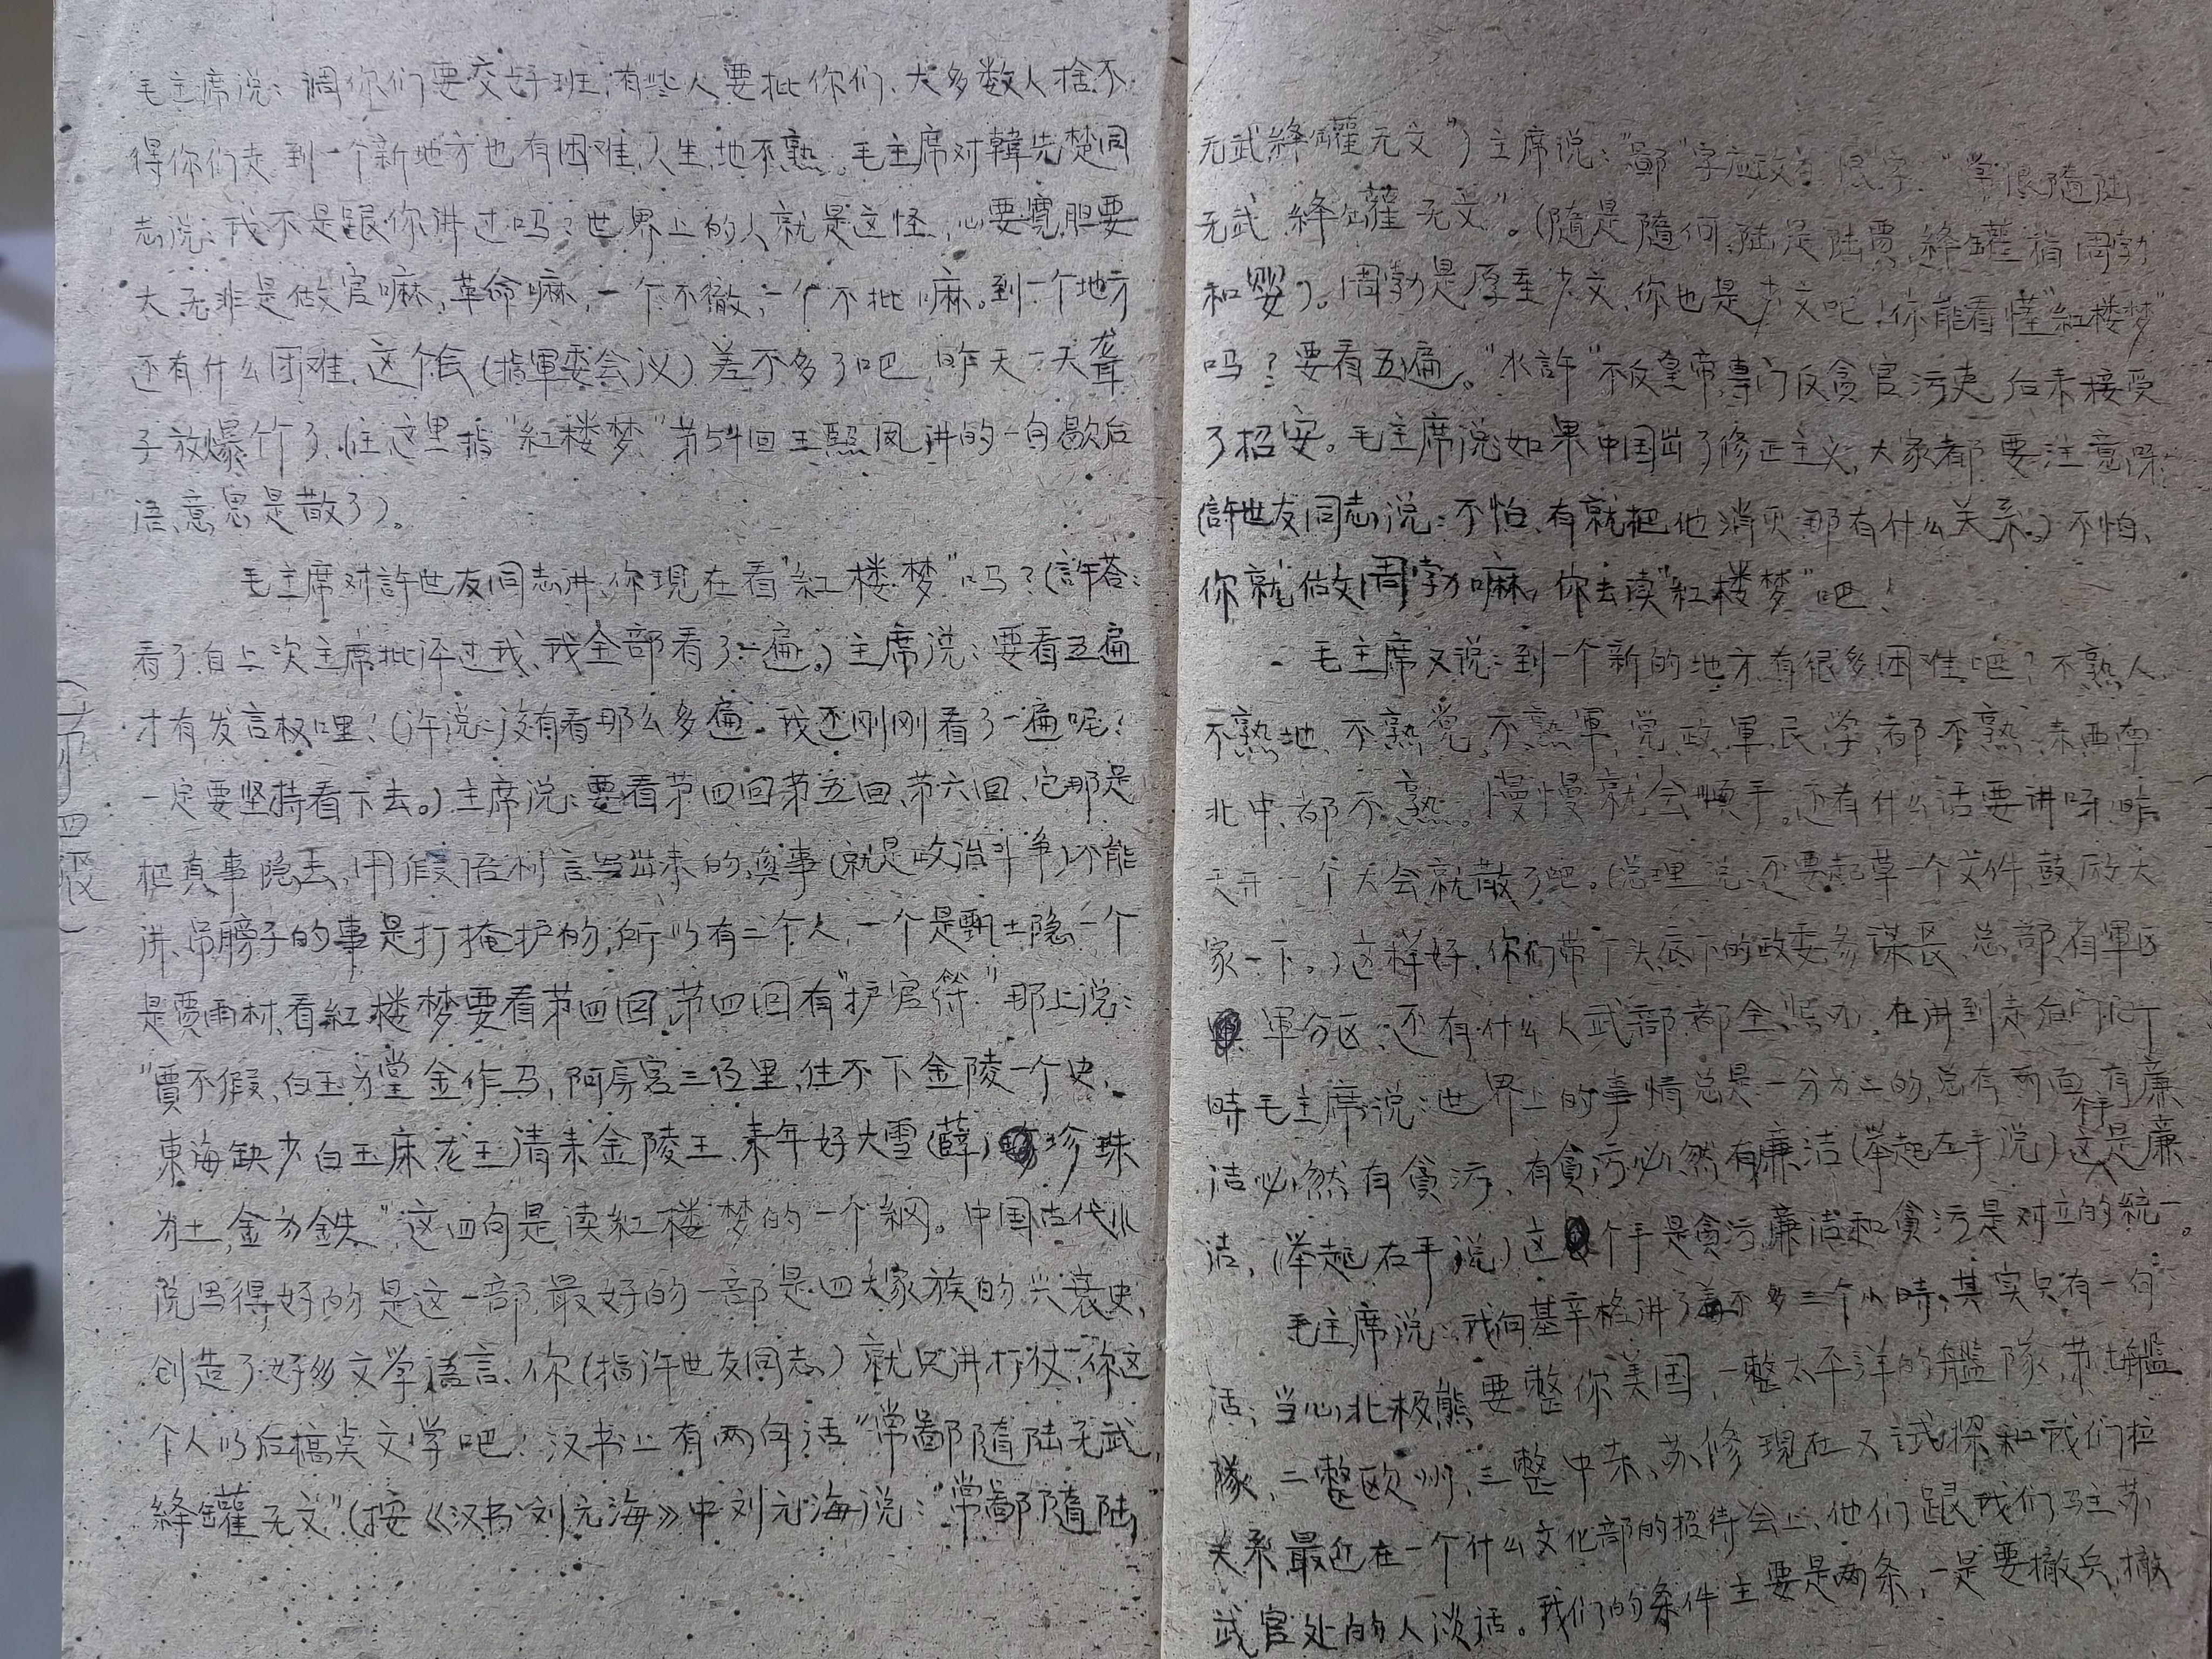 毛主席说：调你们要交好班，有些人要批你们、大多数人捨不
得你们走 到一个新地方也有困难，人生地不熟。毛主席对韓先楚同
志说：我不是跟你讲过吗？世界上的人就是这怪，心要寬，胆要
大 无非是做官嘛，革命嘛，一个不撤，一个不批嘛。到一个地方
还有什么困难，这个会(指軍委会议) 差不多了吧 昨天一天聋
子放爆竹了，(注 这里指“紅楼梦”第54回王熙凤讲的一句歇后
语、意思是散了)。
毛主席对許世友同志讲，你現在看“紅楼梦”吗？(許荅：
看了自上次主席批评过我、我全部看了一遍。) 主席说：要看五遍
才有发言权哩！(许说：没有看那么多遍。我还刚刚看了一遍呢？
一定要坚持看下去。) 主席说：要看第四回第五回、第六回、它那是
把真事隐去，用假语村言写出来的，真事(就是政治斗争)不能
讲、吊膀子的事是打掩护的，所以有二个人，一个是甄士隐一个
是賈雨村，看紅楼梦要看第四回，第四回有“护官符”那上说：
“賈不假，白玉为堂金作马，阿房宫三百里，住不下金陵一个史，
東海缺少白玉床龙王请来金陵王、来年好大雪(薛) 珍珠
为土，金为鉄”这四句是读紅楼梦的一个綱。中国古代小
说写得好的是这一部 最好的一部是四大家族的兴衰史，
创造了好多文学語言、你(指许世友同志) 就只讲打仗，你这
个人以后搞点文学吧！汉书上有两句话“常鄙隨陆无武，
絳罐无文”(按《汉书·刘元海》中刘元海说：“常鄙隨陆，
无武絳罐无文”) 主席说：“鄙”字应改为“恨”字。“常恨隨陆
无武 絳罐无文”。(隨是隨何，陆是陆賈，絳罐指周勃
和嬰)。周勃是厚重少文、你也是少文吧！你能看懂“紅楼梦”
吗？要看五遍。“水許”不反皇帝，專门反貪官污吏 后来接受
了招安。毛主席说：如果中国出了修正主义，大家都要注意呀：
(許世友同志说：不怕、有就把他消灭 那有什么关系。) 不怕、
你就做周勃嘛，你去读“紅楼梦”吧！
毛主席又说：到一个新的地方有很多困难吧？不熟人
不熟地、不熟党，不熟軍，党、政、軍、民、学、都不熟，东西南
北中、都不熟。慢慢就会順手。还有什么话要讲呀，昨
天开一个大会就散了吧。(总理说：还要起草一个文件，鼓励大
家一下。) 这样好，你们带了头底下的政委参谋長、总部，有軍区
軍分区，还有什么人武部都全 在讲到走后门
時毛主席说：世界上的事情总是一分为二的，总有两面，有廉
洁必然有貪污、有貪污必然有廉洁(举起左手说) 这是廉
洁，(举起右手说) 这个手是貪污，廉洁和貪污是对立的統一。
毛主席说：我向基辛格讲了差不多三个小時、其实只有一句
话：当心北极熊要整你美国，一整太平洋的艦隊，第七艦
隊，二整欧州，三整中东，苏修現在又試探和我们拉
关系最近在一个什么文化部的招待会上，他们跟我们驻苏
武官处的人淡话。我们的条件主要是两条，一是要撤兵，撤